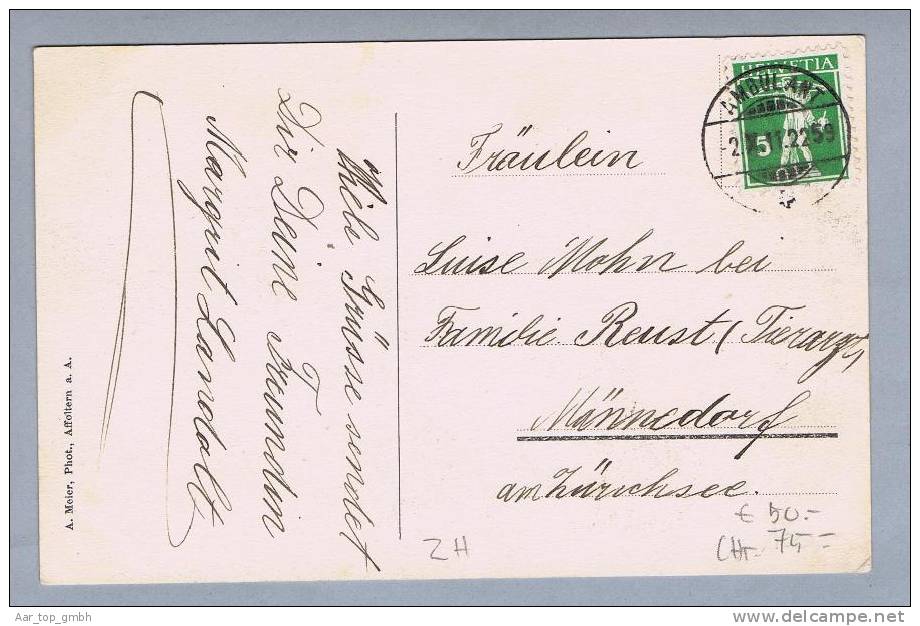 HELVETIA
AMBULANT
2.X.11.22 59
5
Viele Grüsse sendet
Dir Deine Freundin
Margrit Landolt
Fräulein
Luise Mohn bei
Familie Reust (Tierarzt)
Männedorf
am Zürichsee.
€ 50.-
CHr- 75-
ZH
A. Meier, Phot., Affoltern a. A.
Aar_top_gmbh
www.delcampe.net